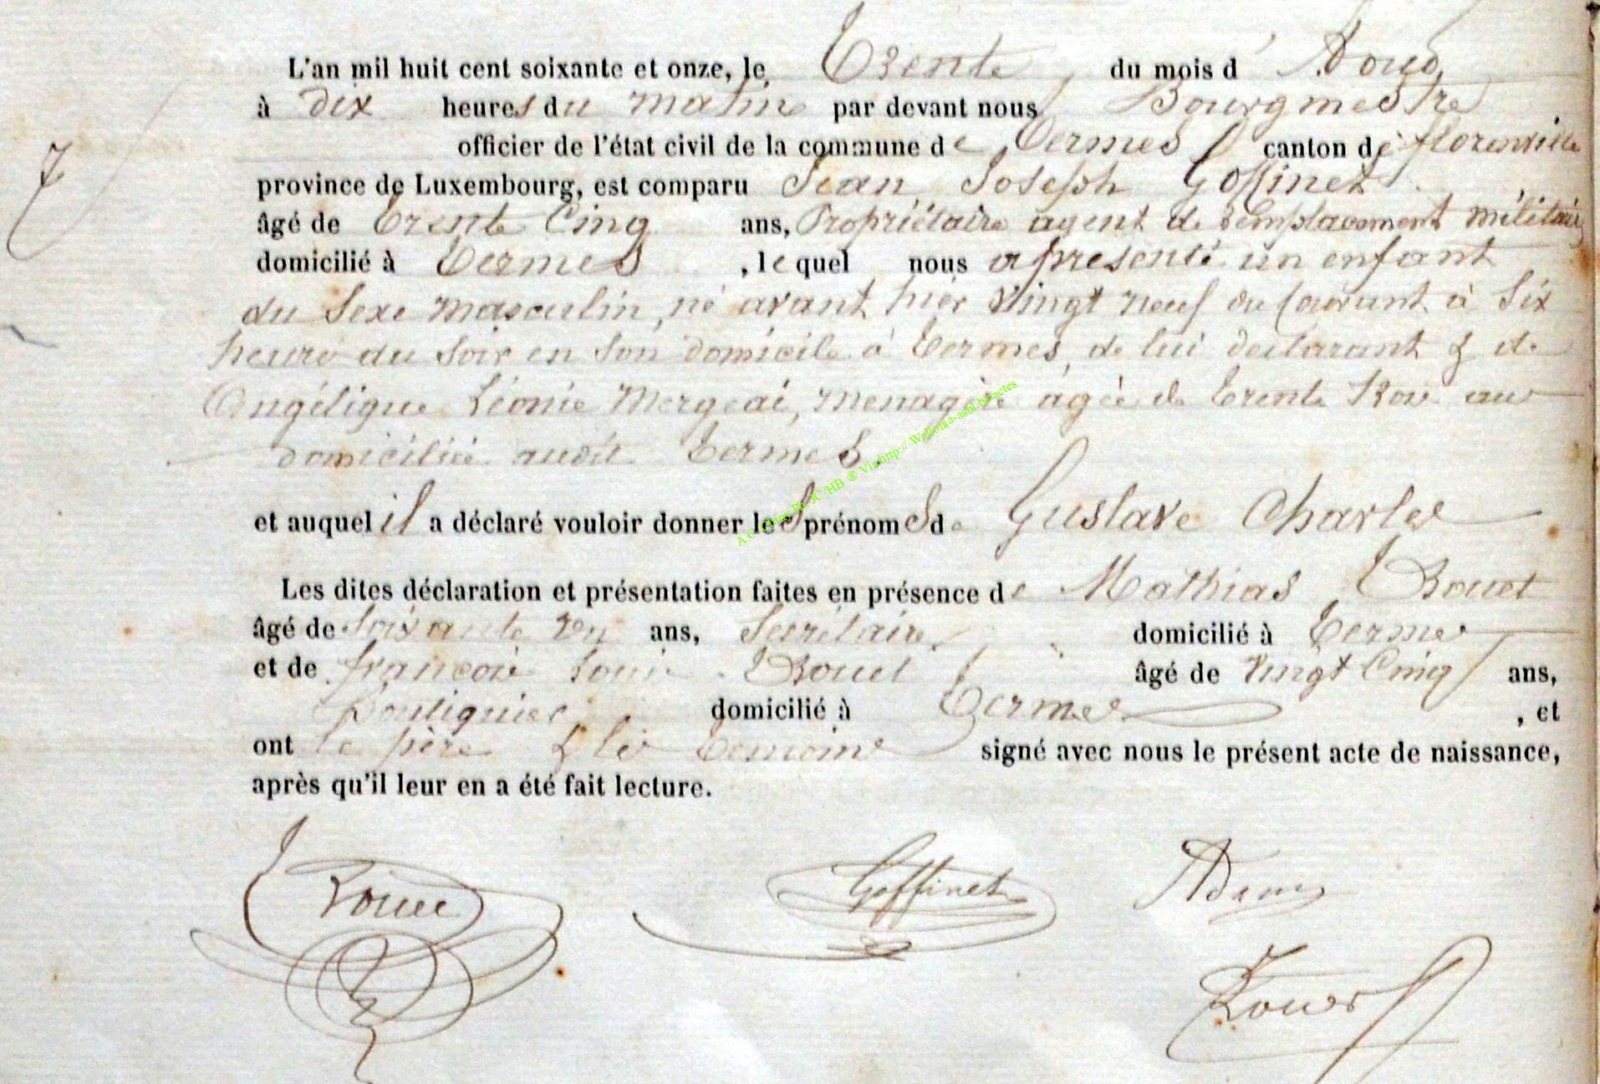 L'an mil huit cent soixante et onze, le Trente du mois d' Aout
à dix heures du matin par devant nous Bourgmestre
officier de l'état civil de la commune de Termes canton de florenville
province de Luxembourg, est comparu Jean Joseph Goffinet
âgé de Trente Cinq ans, Propriétaire agent de remplacement militaire
domicilié à Termes, le quel nous a présenté un enfant
du Sexe masculin, né avant hier vingt neuf du Courant à Six
heure du soir en son domicile à Termes, de lui déclarant & de
Angélique Léonie Mergeai, menagère agée de Trente ans
domiciliée audit Termes
et auquel il a déclaré vouloir donner les prénoms de Gustave Charles
Les dites déclaration et présentation faites en présence de Mathias Rouet
âgé de Soixante ans, Secrétaire domicilié à Termes
et de françois Louis Rouet âgé de vingt Cinq ans,
domicilié à Termes, et
ont le père & les temoins signé avec nous le présent acte de naissance,
après qu'il leur en a été fait lecture.
Rouet Goffinet Adam
Rouet